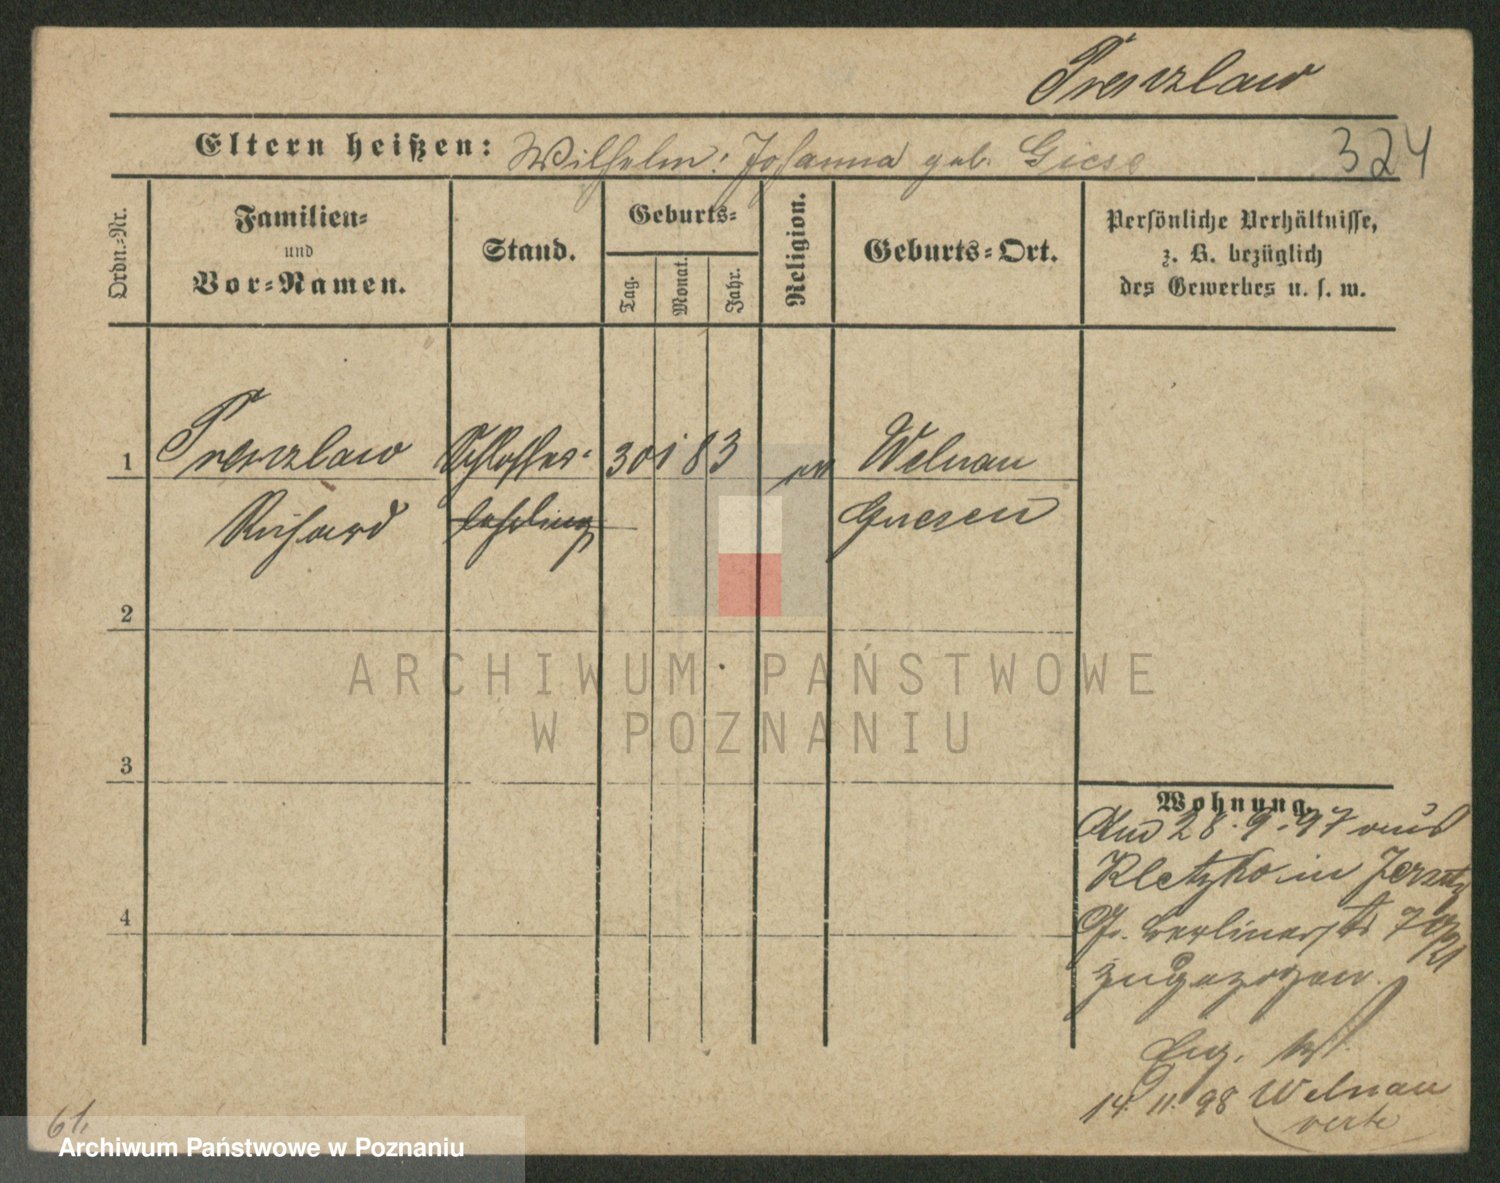 Prenzlaw
Eltern heißen: Wilhelm: Johanna geb. Giese
324
Ordn.-Nr.
Familien-
und
Vor-Namen.
Stand.
Geburts-
Tag.
Monat.
Jahr.
Religion.
Geburts-Ort.
Persönliche Verhältnisse,
z. B. bezüglich
des Gewerbes u. s. w.
1
Prenzlaw
Schlosser-
30 1 83
ev
Welnau
Richard
lehrling
Gnesen
2
3
4
Wohnung.
Am 28.9.97 aus
Kletzko in Jersitz
Gr. Berlinerstr 70
zugezogen.
14. 11. 98 Welnau
verte
61.
ARCHIWUM PAŃSTWOWE
W POZNANIU
Archiwum Państwowe w Poznaniu